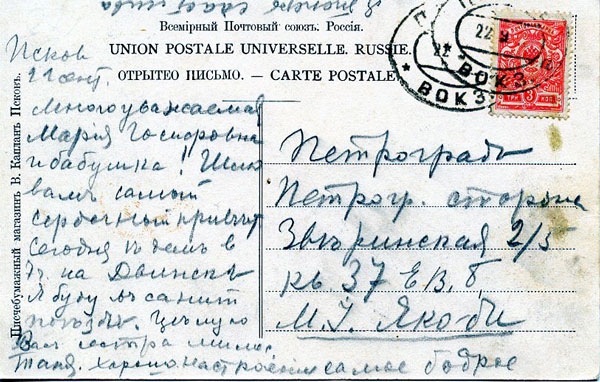 Всемірный Почтовый союзъ. Россія.
UNION POSTALE UNIVERSELLE. RUSSIE.
ОТКРЫТОЕ ПИСЬМО. — CARTE POSTALE
Писчебумажный магазинъ В. Капланъ Псковъ.
ВОКЗ.
22 9
3 КОП
Псков
22 сент.
Многоуважаемая
Мария
и бабушка! Шлю
вамъ самый
сердечный привѣт
Сегодня въ
на Двинскъ
Я буду въ санит
поѣздѣ. Цѣлую
Вам сестра
Таня. Хорошо настроение самое бодрое
Петроградъ
Петрогр. сторона
Звѣринская 2/5
кв 37 Е.В.б.
М. І. Якоби